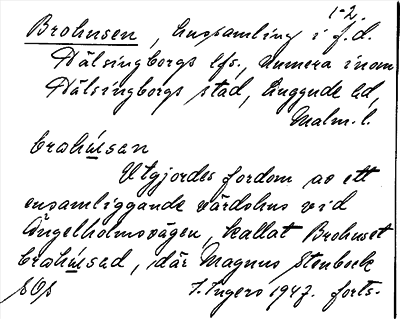 1-2.
Brohusen, hussamling i f.d.
Hälsingborgs lfs., numera inom
Hälsingborgs stad, Luggude hd,
Malm. l.
Utgjordes fordom av ett
ensamliggande värdshus vid
Ängelholmsvägen, kallat Brohuset
där Magnus Stenbock
I. Ingers 1947. forts.